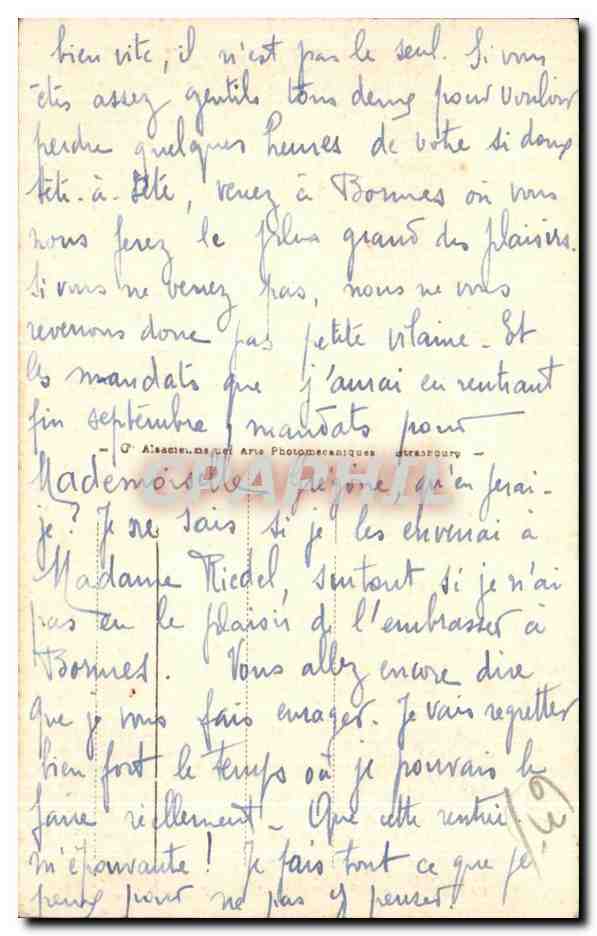 bien vite, il n'est pas le seul. Si vous
êtes assez gentils tous deux pour vouloir
perdre quelques heures de votre si doux
tête-à-tête, venez à Bormes où vous
nous ferez le plus grand des plaisirs.
Si vous ne venez pas, nous ne vous
reverrons donc pas petite vilaine - Et
les mandats que j'aurai en rentrant
fin septembre, mandats pour
- Cie Alsacienne des Arts Photomécaniques Strasbourg -
CPAPHIL
Mademoiselle, qu'en ferai-
je? Je ne sais si je les enverrai à
Madame Riedel, surtout si je n'ai
pas eu le plaisir de l'embrasser à
Bormes. Vous allez encore dire
que je vous fais enrager. Je vais regretter
bien fort le temps où je pouvais le
faire réellement - Que cette rentrée
m'épouvante! Je fais tout ce que je
peux pour ne pas y penser.